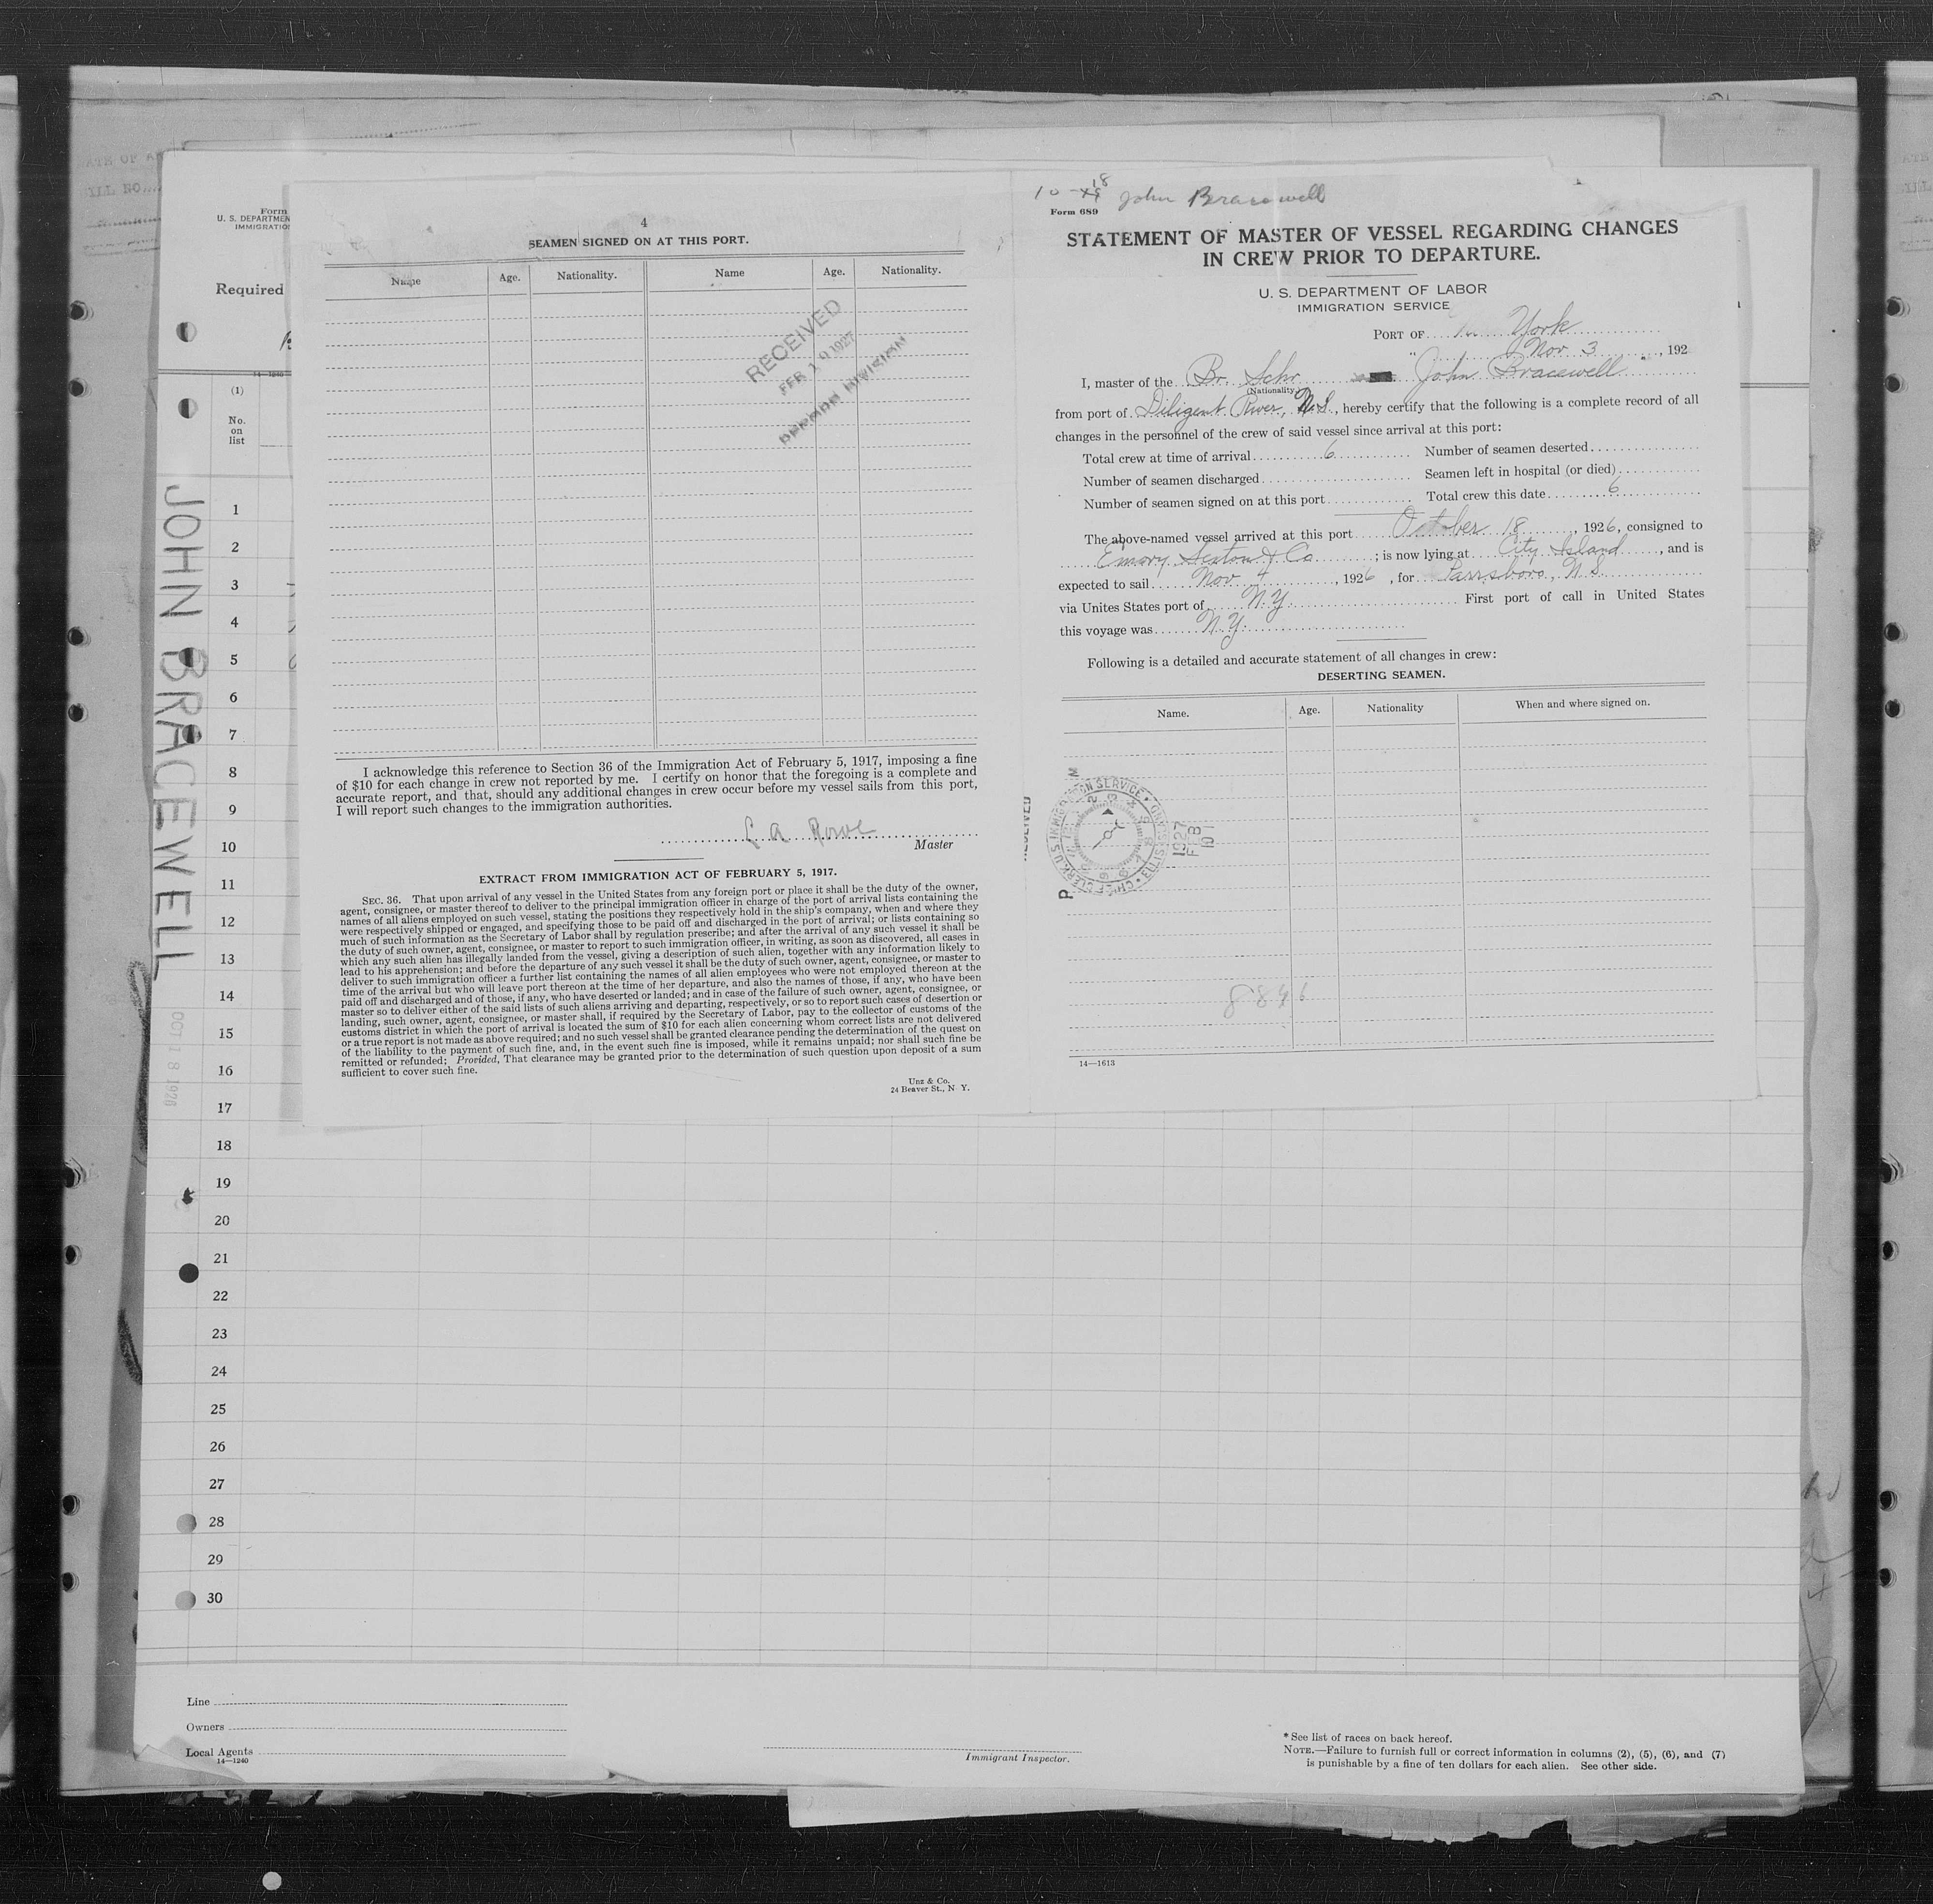 Form
U. S. DEPARTMEN
IMMIGRATIO
Required
14—1240
(1)
No.
on
list
1
2
3
4
5
6
7
8
9
10
11
12
13
14
15
16
17
18
19
20
21
22
23
24
25
26
27
28
29
30
JOHN BRACEWELL
OCT 18 1926
4
SEAMEN SIGNED ON AT THIS PORT.
Name Age. Nationality. Name Age. Nationality.
RECEIVED
FEB 10 1927
RECORD DIVISION
I acknowledge this reference to Section 36 of the Immigration Act of February 5, 1917, imposing a fine
of $10 for each change in crew not reported by me. I certify on honor that the foregoing is a complete and
accurate report, and that, should any additional changes in crew occur before my vessel sails from this port,
I will report such changes to the immigration authorities.
Rowe
Master
EXTRACT FROM IMMIGRATION ACT OF FEBRUARY 5, 1917.
SEC. 36. That upon arrival of any vessel in the United States from any foreign port or place it shall be the duty of the owner,
agent, consignee, or master thereof to deliver to the principal immigration officer in charge of the port of arrival lists containing the
names of all aliens employed on such vessel, stating the positions they respectively hold in the ship's company, when and where they
were respectively shipped or engaged, and specifying those to be paid off and discharged in the port of arrival; or lists containing so
much of such information as the Secretary of Labor shall by regulation prescribe; and after the arrival of any such vessel it shall be
the duty of such owner, agent, consignee, or master to report to such immigration officer, in writing, as soon as discovered, all cases in
which any such alien has illegally landed from the vessel, giving a description of such alien, together with any information likely to
lead to his apprehension; and before the departure of any such vessel it shall be the duty of such owner, agent, consignee, or master to
deliver to such immigration officer a further list containing the names of all alien employees who were not employed thereon at the
time of the arrival but who will leave port thereon at the time of her departure, and also the names of those, if any, who have been
paid off and discharged and of those, if any, who have deserted or landed; and in case of the failure of such owner, agent, consignee, or
master so to deliver either of the said lists of such aliens arriving and departing, respectively, or so to report such cases of desertion or
landing, such owner, agent, consignee, or master shall, if required by the Secretary of Labor, pay to the collector of customs of the
customs district in which the port of arrival is located the sum of $10 for each alien concerning whom correct lists are not delivered
or a true report is not made as above required; and no such vessel shall be granted clearance pending the determination of the quest on
of the liability to the payment of such fine, and, in the event such fine is imposed, while it remains unpaid; nor shall such fine be
remitted or refunded; Provided, That clearance may be granted prior to the determination of such question upon deposit of a sum
sufficient to cover such fine.
Unz & Co.
24 Beaver St., N Y.
10-18 John Bracewell
Form 689
STATEMENT OF MASTER OF VESSEL REGARDING CHANGES
IN CREW PRIOR TO DEPARTURE.
U. S. DEPARTMENT OF LABOR
IMMIGRATION SERVICE
PORT OF N. York
" Nov 3, 192
I, master of the Br. Schr John Bracewell
(Nationality)
from port of Diligent River, N.S., hereby certify that the following is a complete record of all
changes in the personnel of the crew of said vessel since arrival at this port:
Total crew at time of arrival 6 Number of seamen deserted
Number of seamen discharged Seamen left in hospital (or died)
Number of seamen signed on at this port Total crew this date 6
The above-named vessel arrived at this port October 18, 1926, consigned to
Emory Sexton & Co; is now lying at City Island, and is
expected to sail Nov 4, 1926, for Parrsboro, N.S.
via Unites States port of N.Y. First port of call in United States
this voyage was N.Y.
Following is a detailed and accurate statement of all changes in crew:
DESERTING SEAMEN.
Name. Age. Nationality When and where signed on.
RECEIVED
CHIEF CLERK U.S. IMMIGRATION SERVICE
1927
FEB
10
P M
8846
14—1613
Line
Owners
Local Agents
14—1240
Immigrant Inspector.
* See list of races on back hereof.
NOTE.—Failure to furnish full or correct information in columns (2), (5), (6), and (7)
is punishable by a fine of ten dollars for each alien. See other side.